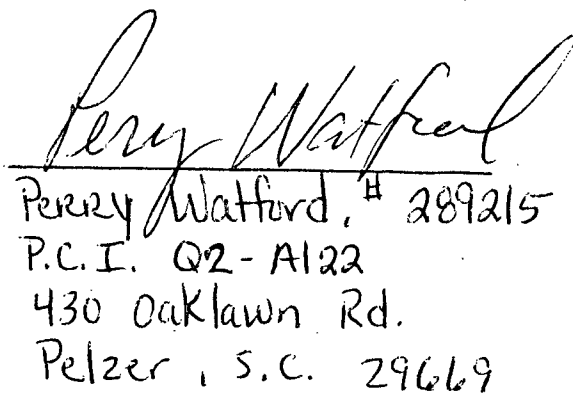 Perry Watford
Perry Watford, # 289215
P.C.I. Q2-A122
430 Oaklawn Rd.
Pelzer, S.C. 29669